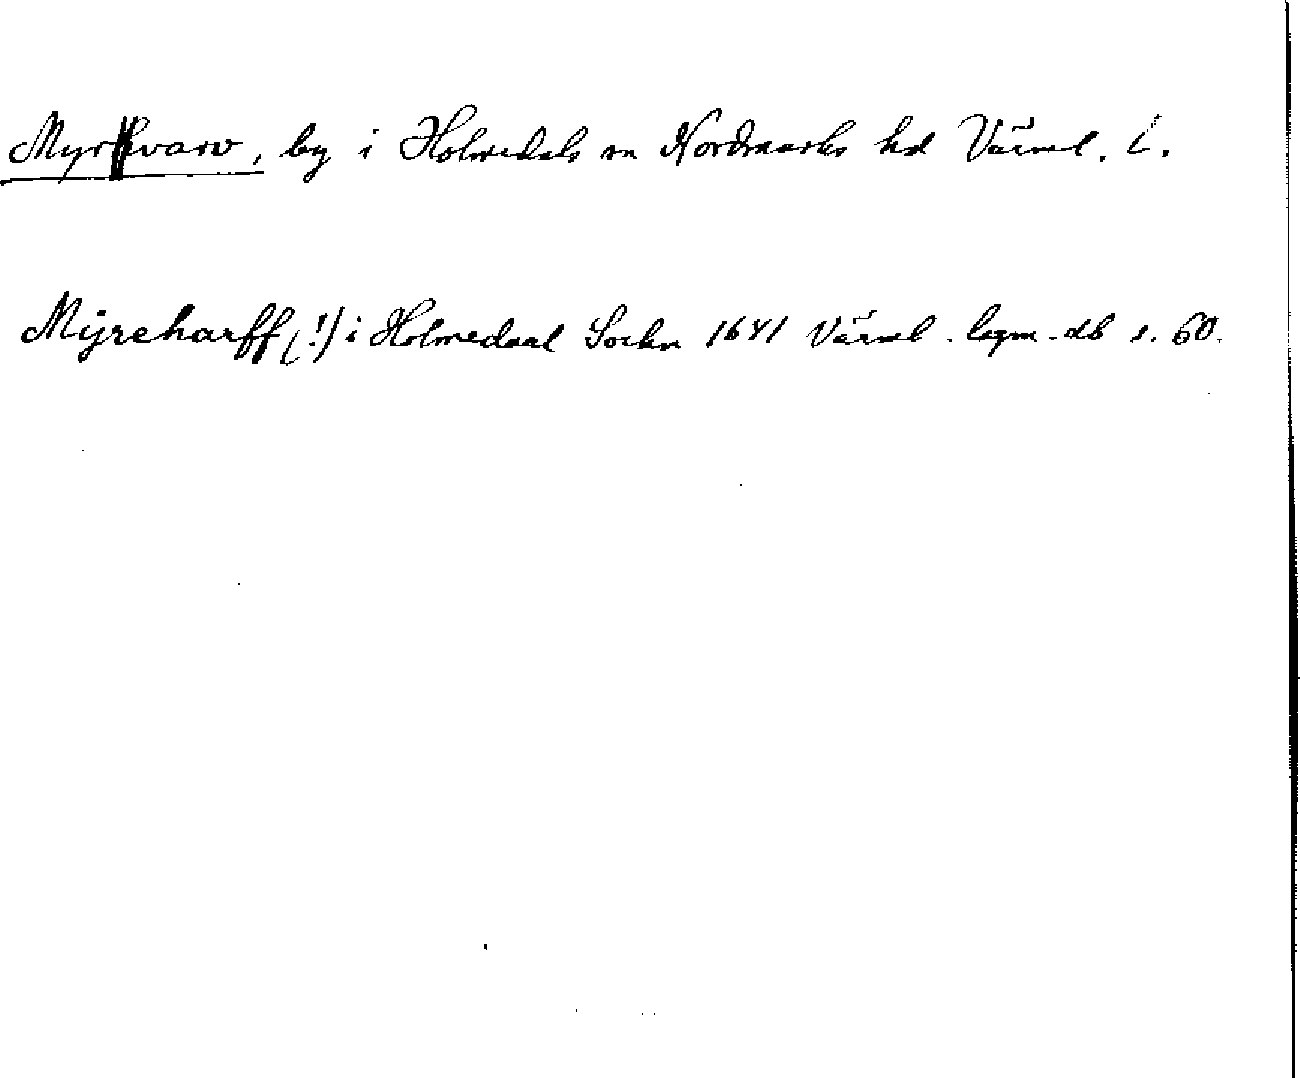 Myrhvarv, by i Holmedals sn Nordmarks hd Värml. L.
Mÿreharff (!) i Holmedaal Sochn 1641 Värml. lagm.-db s. 60.